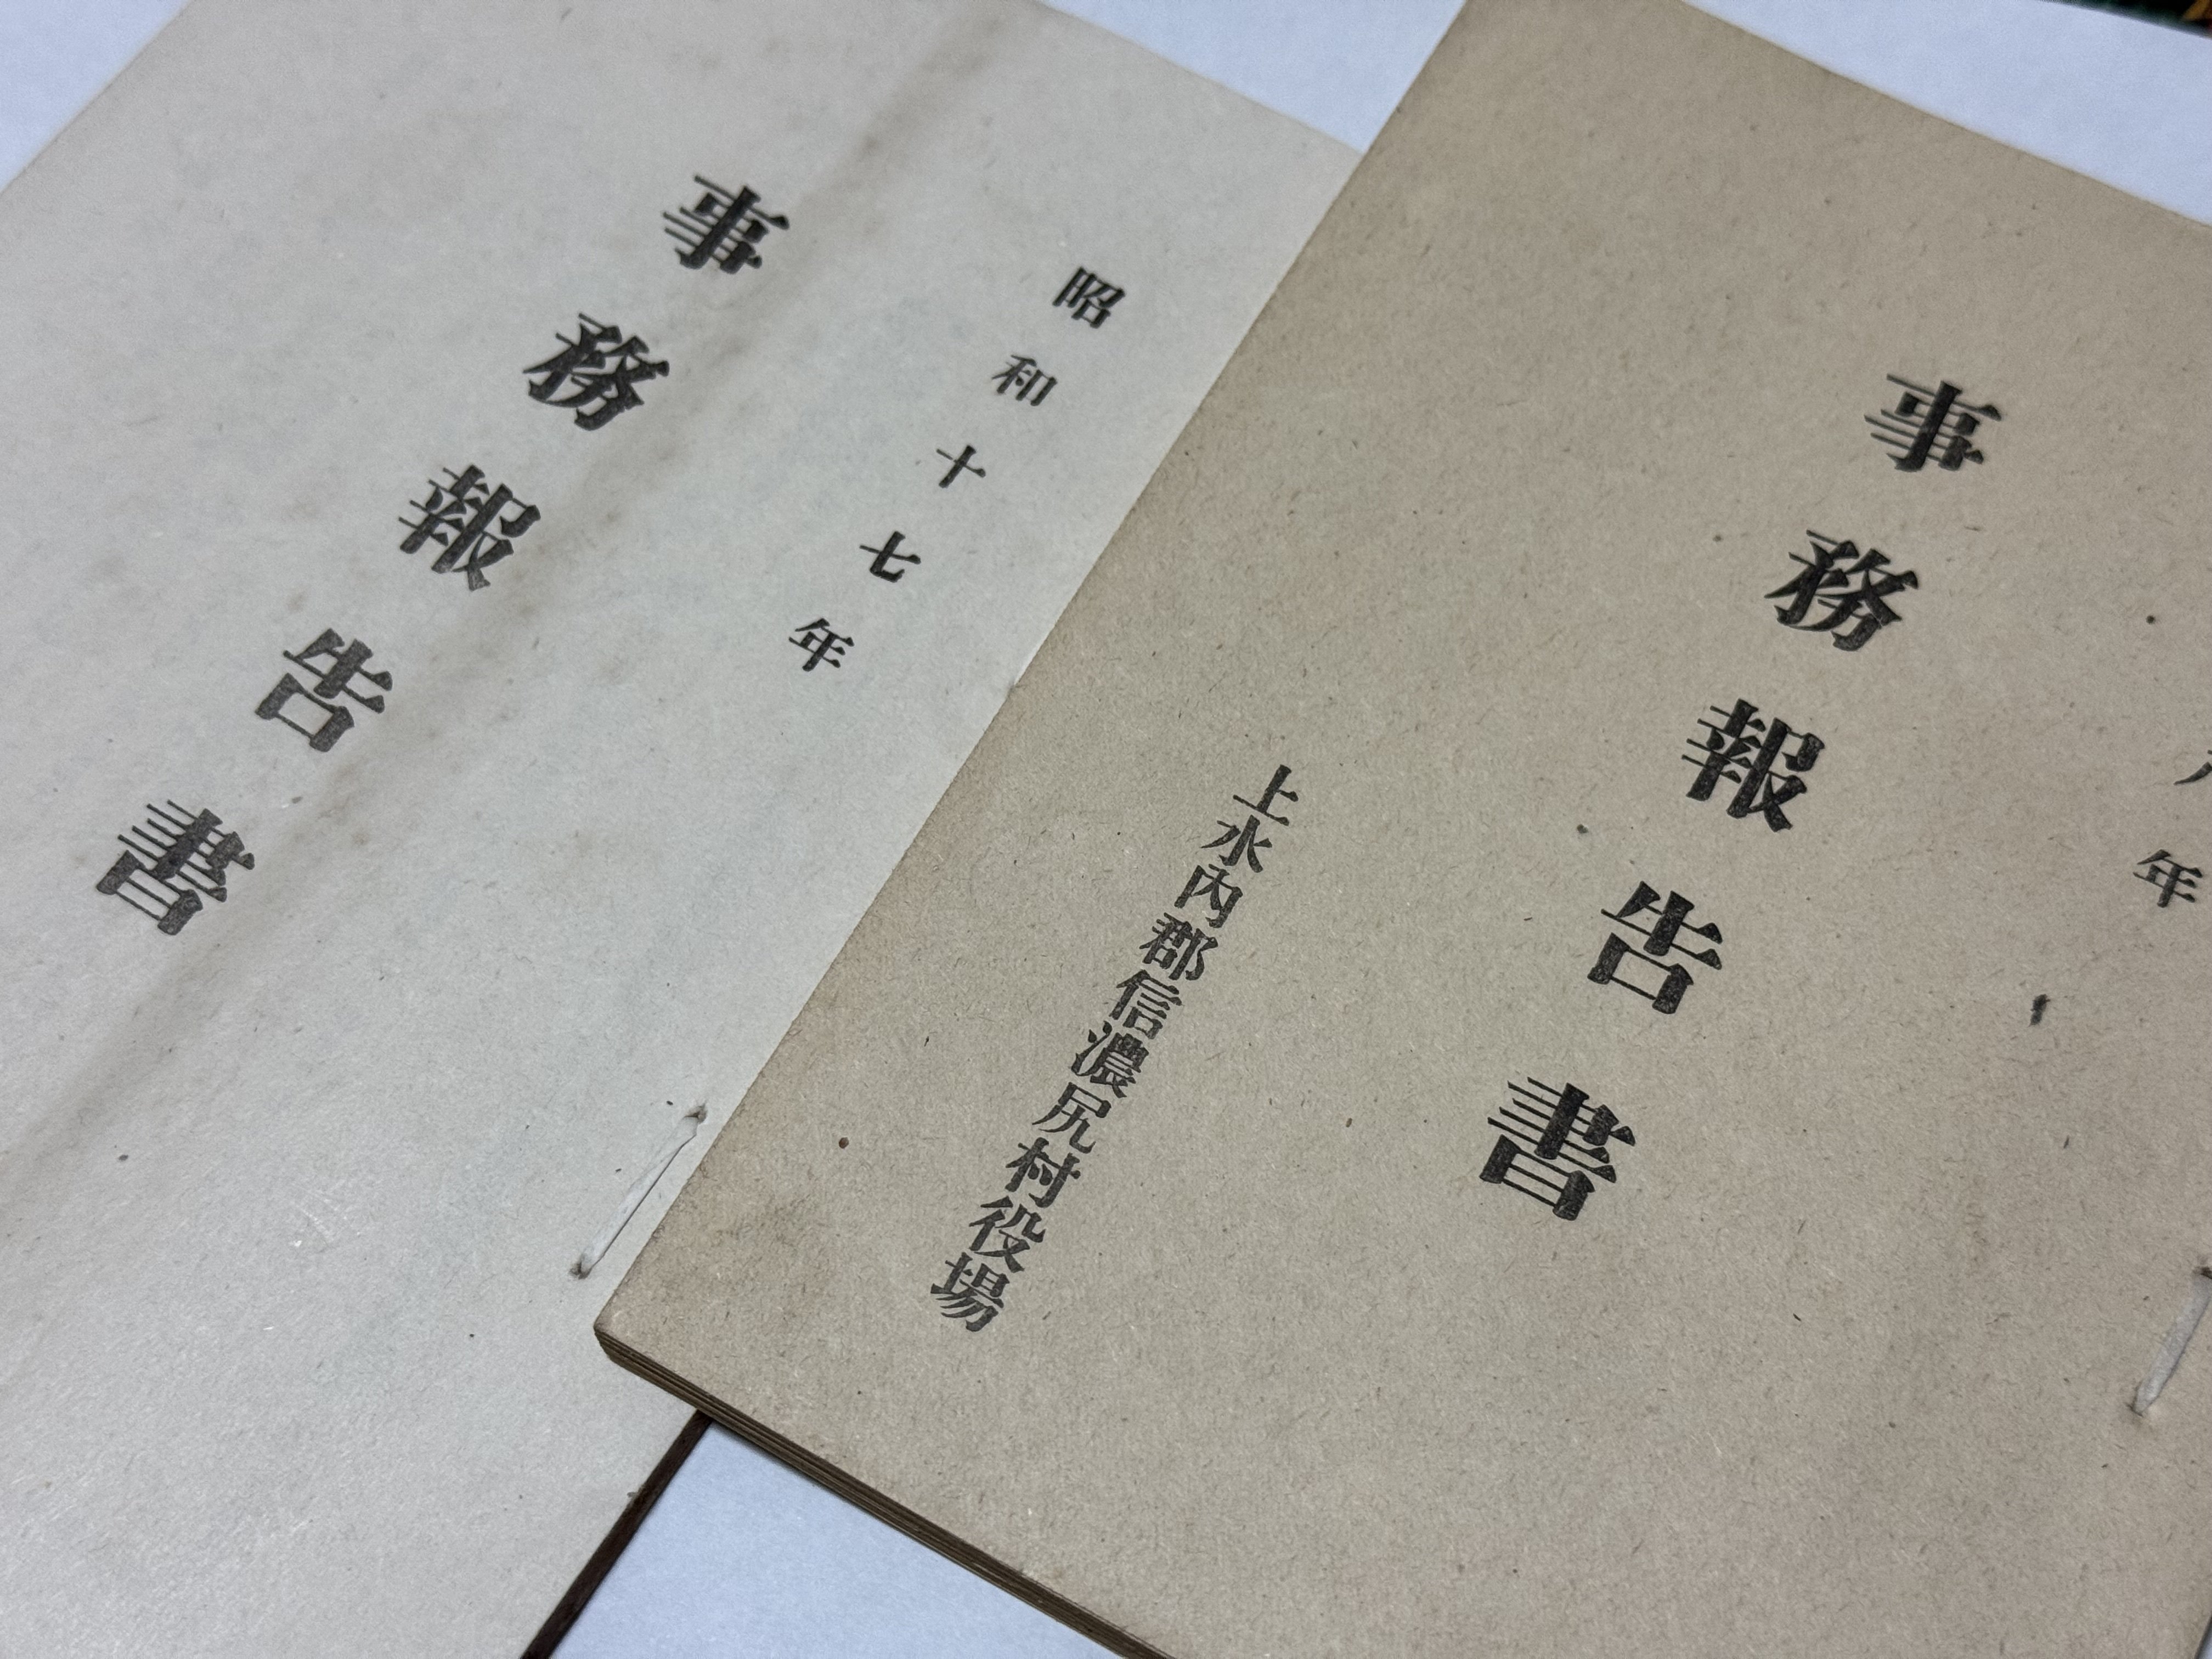 昭和十七年
事務報告書
年
事務報告書
上水內郡信濃尻村役場